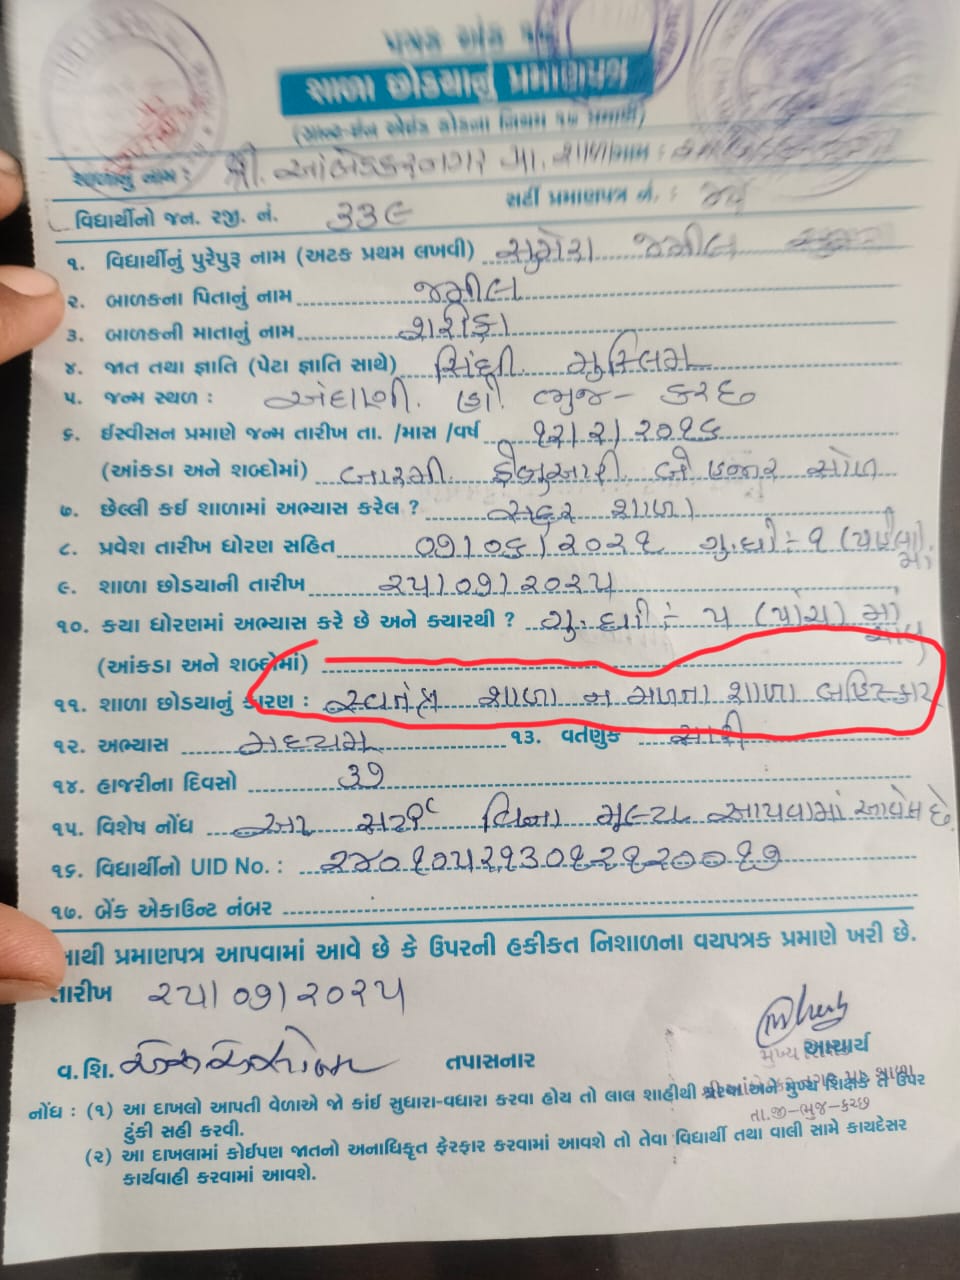 પત્રક અેક ૧૬
શાળા છોડયાનું પ્રમાણપત્ર
(ગ્રાન્ટ-ઇન એઇડ કોડના નિયમ ૧૭ પ્રમાણે)
શાળાનું નામ : શ્રી. આંબેડકરનગર પ્રા. શાળા ગામ :
વિદ્યાર્થીનો જન. રજી. નં. ૩૩૯ સર્ટી પ્રમાણપત્ર નં. :
૧. વિદ્યાર્થીનું પુરેપુરૂ નામ (અટક પ્રથમ લખવી) સુમેરા જમીલ
૨. બાળકના પિતાનું નામ જમીલ
૩. બાળકની માતાનું નામ શરીફા
૪. જાત તથા જ્ઞાતિ (પેટા જ્ઞાતિ સાથે) સિંધી મુસ્લિમ
૫. જન્મ સ્થળ : અંધાણી. તા. ભુજ - કચ્છ
૬. ઈસ્વીસન પ્રમાણે જન્મ તારીખ તા. /માસ /વર્ષ ૧૨/૨/૨૦૧૬
(આંકડા અને શબ્દોમાં) બારમી ફેબ્રુઆરી બે હજાર સોળ
૭. છેલ્લી કઈ શાળામાં અભ્યાસ કરેલ ? સદર શાળા
૮. પ્રવેશ તારીખ ધોરણ સહિત ૦૭/૦૬/૨૦૨૧ ગુ.ધો :- ૧ (પહેલા) માં
૯. શાળા છોડયાની તારીખ ૨૫/૦૭/૨૦૨૫
૧૦. કયા ધોરણમાં અભ્યાસ કરે છે અને ક્યારથી ? ગુ.ધો :- ૫ (પાંચ) માં ચાલુ
(આંકડા અને શબ્દોમાં)
૧૧. શાળા છોડયાનું કારણ : સ્વતંત્ર શાળા ન મળતા શાળા બહિષ્કાર
૧૨. અભ્યાસ મધ્યમ ૧૩. વર્તણુક સારી
૧૪. હાજરીના દિવસો ૩૭
૧૫. વિશેષ નોંધ આ સર્ટી વિના મૂલ્યે આપવામાં આવેલ છે.
૧૬. વિદ્યાર્થીનો UID No. : ૨૪૦૧૦૫૨૧૩૦૧૨૧૨૦૦૧૭
૧૭. બેંક એકાઉન્ટ નંબર
આથી પ્રમાણપત્ર આપવામાં આવે છે કે ઉપરની હકીકત નિશાળના વયપત્રક પ્રમાણે ખરી છે.
તારીખ ૨૫/૦૭/૨૦૨૫
વ.શિ. તપાસનાર આચાર્ય
મુખ્ય શિક્ષક
નોંધ : (૧) આ દાખલો આપતી વેળાએ જો કાંઈ સુધારા-વધારા કરવા હોય તો લાલ શાહીથી કરવા અને મુખ્ય શિક્ષકે તે ઉપર
ટુંકી સહી કરવી.
તા.જી-ભુજ-કચ્છ
(૨) આ દાખલામાં કોઈપણ જાતનો અનાધિકૃત ફેરફાર કરવામાં આવશે તો તેવા વિદ્યાર્થી તથા વાલી સામે કાયદેસર
કાર્યવાહી કરવામાં આવશે.